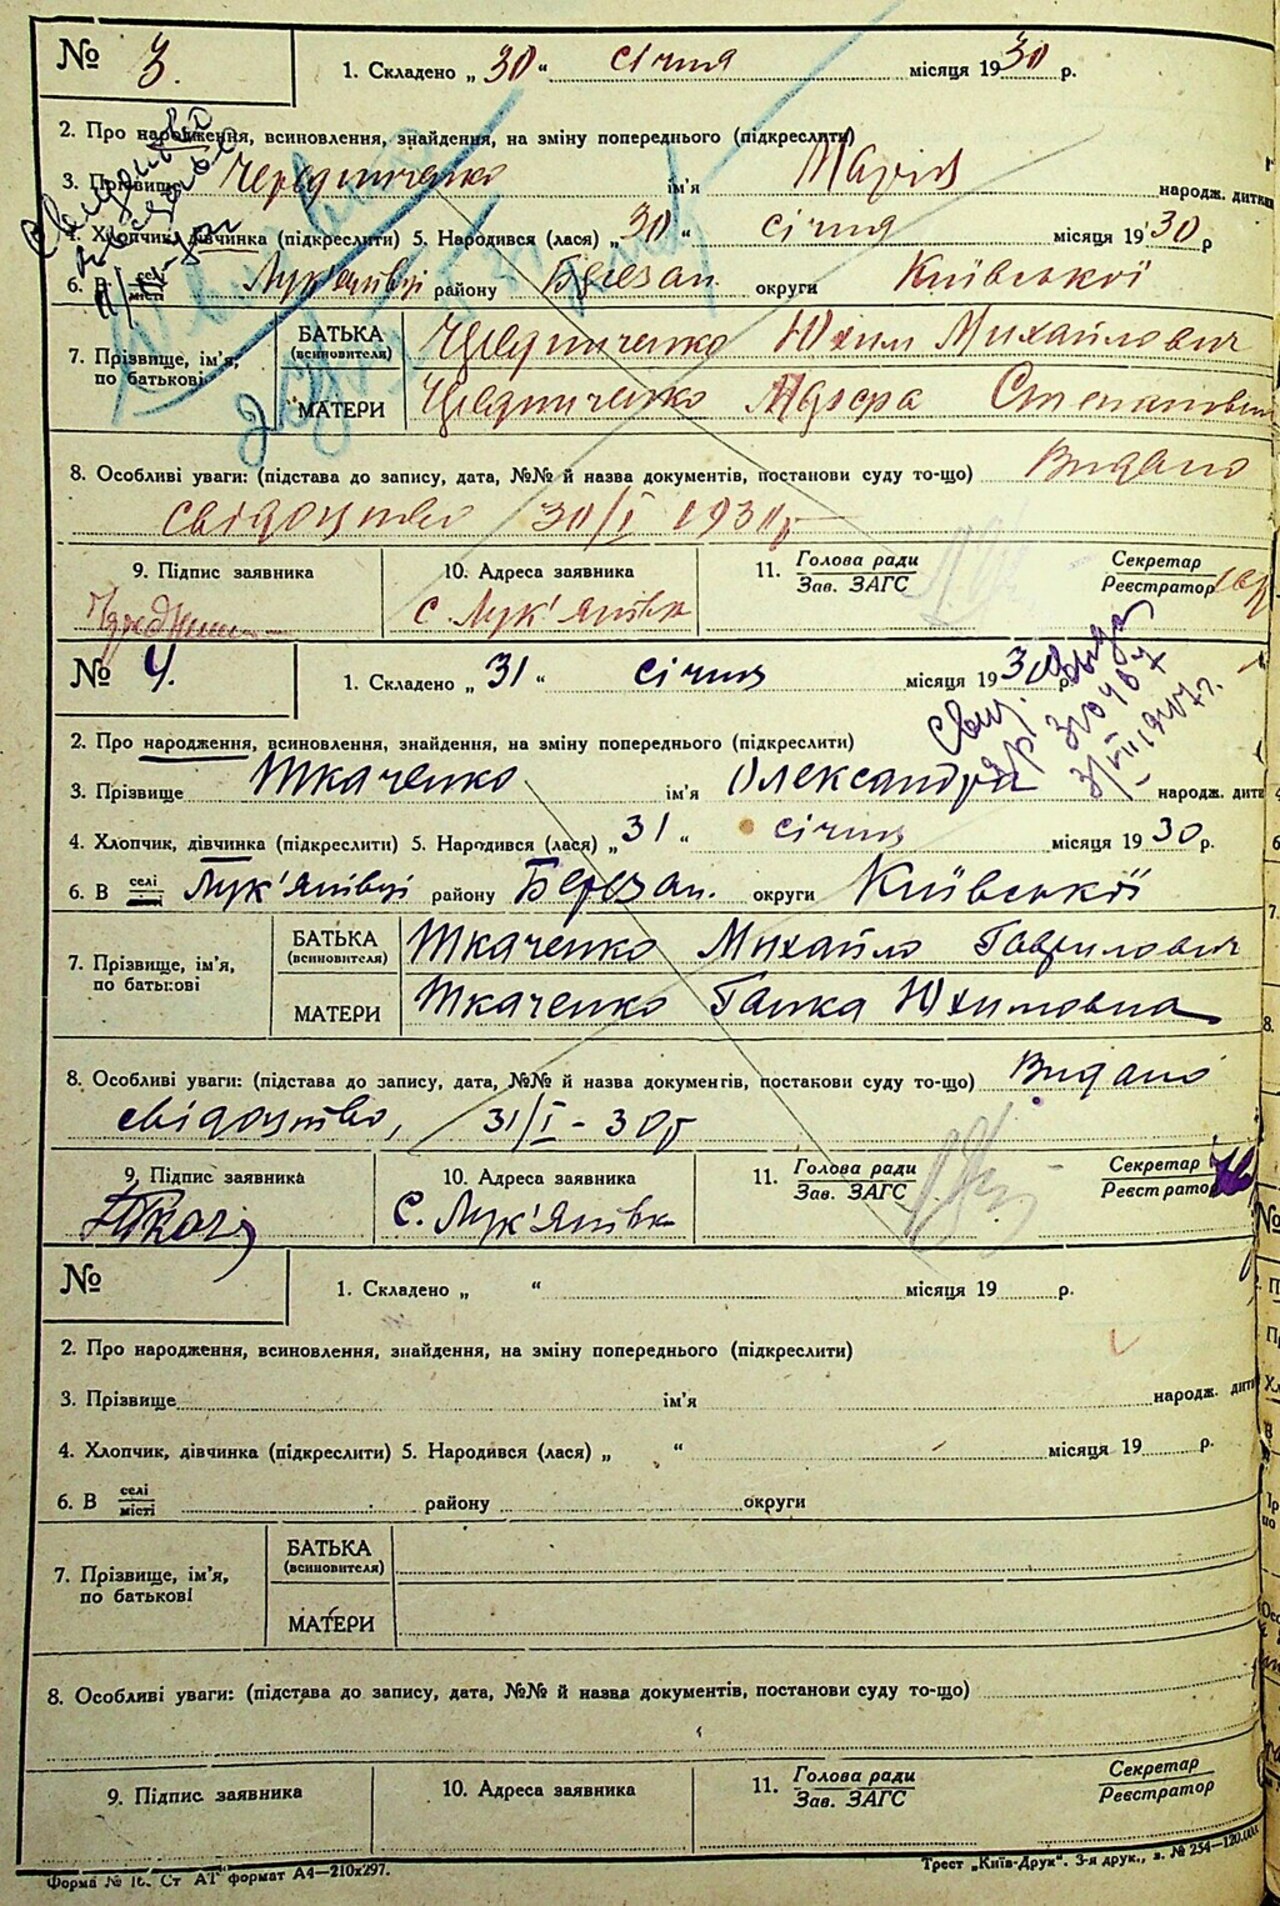 № 3.
1. Складено „ 30 “ січня місяця 1930 р.
2. Про народження, всиновлення, знайдення, на зміну попереднього (підкреслити)
3. Прізвище Чередниченко ім'я Марія народж. дитини
4. Хлопчик, дівчинка (підкреслити) 5. Народився (лася) „ 30 “ січня місяця 1930 р
6. В селі місті Лук'янівці району Березан. округи Київської
7. Прізвище, ім'я, по батькові
БАТЬКА (всиновителя) Чередниченко Юхим Михайлович
МАТЕРИ Чередниченко Степановна
8. Особливі уваги: (підстава до запису, дата, №№ й назва документів, постанови суду то-що) Видано
свідоцтво 30/I 1930р
9. Підпис заявника
10. Адреса заявника
с. Лук'янівка
11. Голова ради Зав. ЗАГС
Секретар Реєстратор
№ 4.
1. Складено „ 31 “ січня місяця 1930 р.
Свид.
2. Про народження, всиновлення, знайдення, на зміну попереднього (підкреслити)
3. Прізвище Ткаченко ім'я Олександра народж. дити
4. Хлопчик, дівчинка (підкреслити) 5. Народився (лася) „ 31 “ січня місяця 1930 р.
6. В селі Лук'янівці району Березан. округи Київської
7. Прізвище, ім'я, по батькові
БАТЬКА (всиновителя) Ткаченко Михайло Гаврилович
МАТЕРИ Ткаченко Ганка Юхимовна
8. Особливі уваги: (підстава до запису, дата, №№ й назва документів, постанови суду то-що) Видано
свідоцтво, 31/I - 30р
9. Підпис заявника
10. Адреса заявника
с. Лук'янівка
11. Голова ради Зав. ЗАГС
Секретар Реєстратор
№
1. Складено „ “ місяця 19 р.
2. Про народження, всиновлення, знайдення, на зміну попереднього (підкреслити)
3. Прізвище ім'я народж. дити
4. Хлопчик, дівчинка (підкреслити) 5. Народився (лася) „ “ місяця 19 р.
6. В селі місті району округи
7. Прізвище, ім'я, по батькові
БАТЬКА (всиновителя)
МАТЕРИ
8. Особливі уваги: (підстава до запису, дата, №№ й назва документів, постанови суду то-що)
9. Підпис заявника
10. Адреса заявника
11. Голова ради Зав. ЗАГС
Секретар Реєстратор
Форма № 1б. Ст АТ формат А4—210х297.
Трест „Київ-Друк“. 3-я друк., з. № 254—120.000